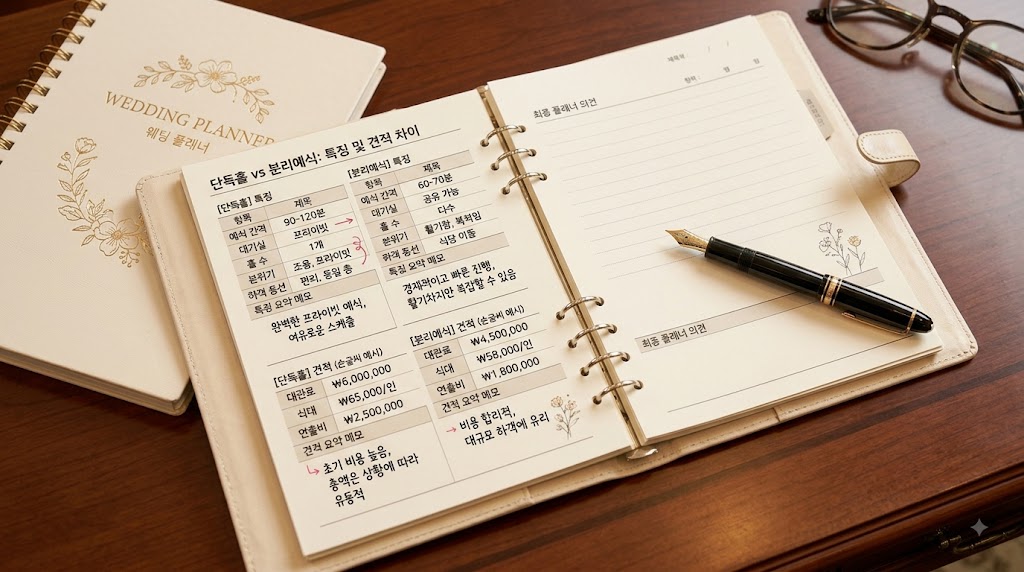 WEDDING PLANNER
웨딩 플래너
단독홀 vs 분리예식: 특징 및 견적 차이
[단독홀] 특징
항목 제목
예식 간격 90-120분
대기실 프라이빗
홀 수 1개
분위기 조용, 프라이빗
하객 동선 편리, 동일 층
특징 요약 메모
완벽한 프라이빗 예식,
여유로운 스케줄
[분리예식] 특징
항목 제목
예식 간격 60-70분
대기실 공유 가능
홀 수 다수
분위기 활기참, 북적임
하객 동선 식당 이동
특징 요약 메모
경제적이고 빠른 진행,
활기차지만 복잡할 수 있음
[단독홀] 견적 (손글씨 예시)
대관료 ₩6,000,000
식대 ₩65,000/인
연출비 ₩2,500,000
견적 요약 메모
초기 비용 높음,
총액은 상황에 따라
유동적
[분리예식] 견적 (손글씨 예시)
대관료 ₩4,500,000
식대 ₩58,000/인
연출비 ₩1,800,000
견적 요약 메모
비용 합리적,
대규모 하객에 유리
최종 플래너 의견
최종 플래너 의견